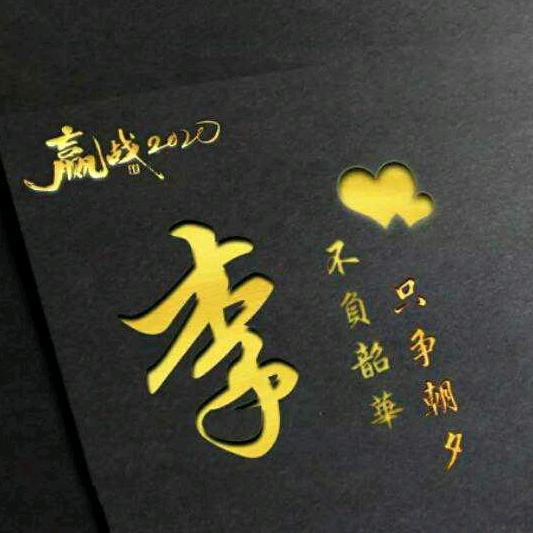 赢战2020
李
只争朝夕
不负韶華